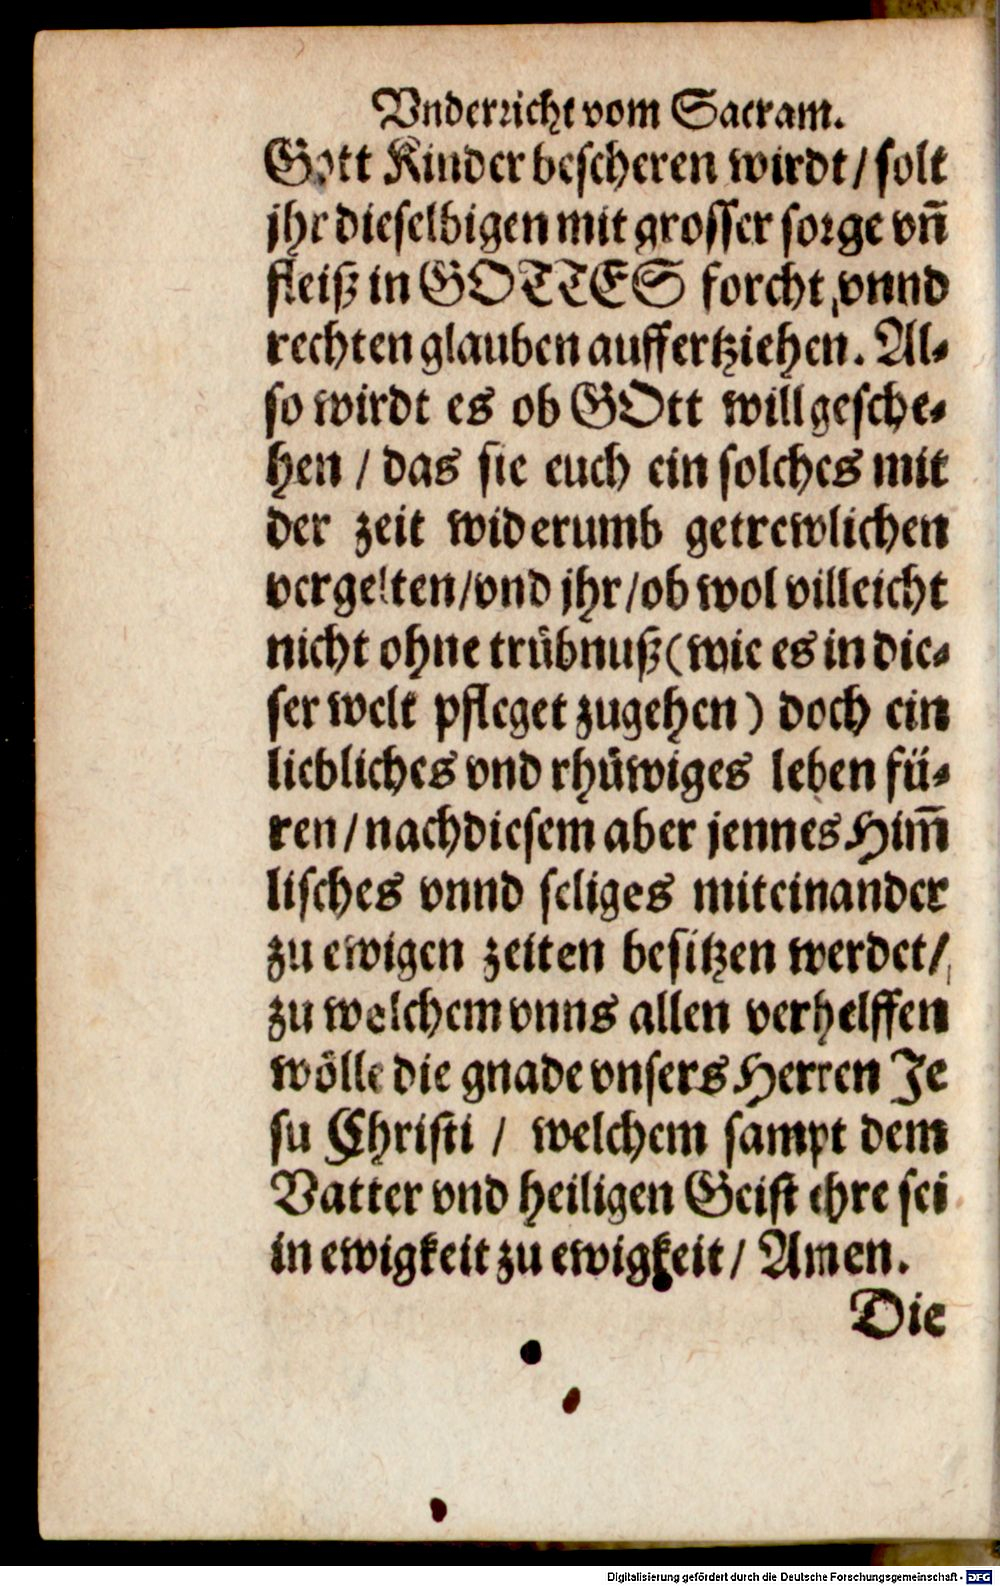 Vnderricht vom Sacram.
Gott Kinder bescheren wirdt / solt
jhr dieselbigen mit grosser sorge vñ
fleiß in GOTTES forcht, vnnd
rechten glauben auffertziehen. Al-
so wirdt es ob GOtt will gesche-
hen / das sie euch ein solches mit
der zeit widerumb getrewlichen
vergelten / vnd jhr / ob wol villeicht
nicht ohne trübnuß (wie es in die-
ser welt pfleget zugehen) doch ein
liebliches vnd rhüwiges leben fü-
ren / nach diesem aber jennes Him̃
lisches vnnd seliges miteinander
zu ewigen zeiten besitzen werdet /
zu welchem vnns allen verhelffen
wölle die gnade vnsers Herren Je
su Christi / welchem sampt dem
Vatter vnd heiligen Geist ehre sei
in ewigkeit zu ewigkeit / Amen.
Die
Digitalisierung gefördert durch die Deutsche Forschungsgemeinschaft - DFG